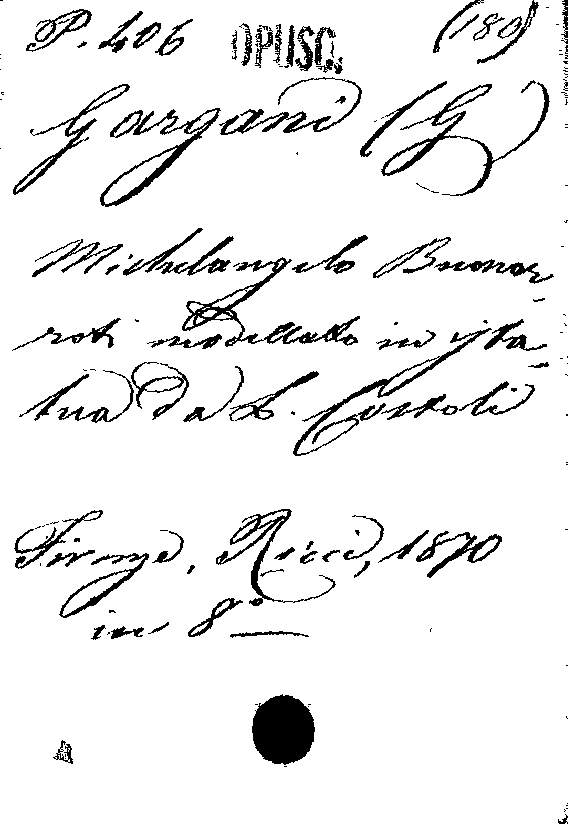 P. 406 OPUSC. (180)
Gargani (G)
Michelangelo Buonar-
roti modellato in ista-
tua da L. Costoli
Firenze, Ricci, 1870
in 8°